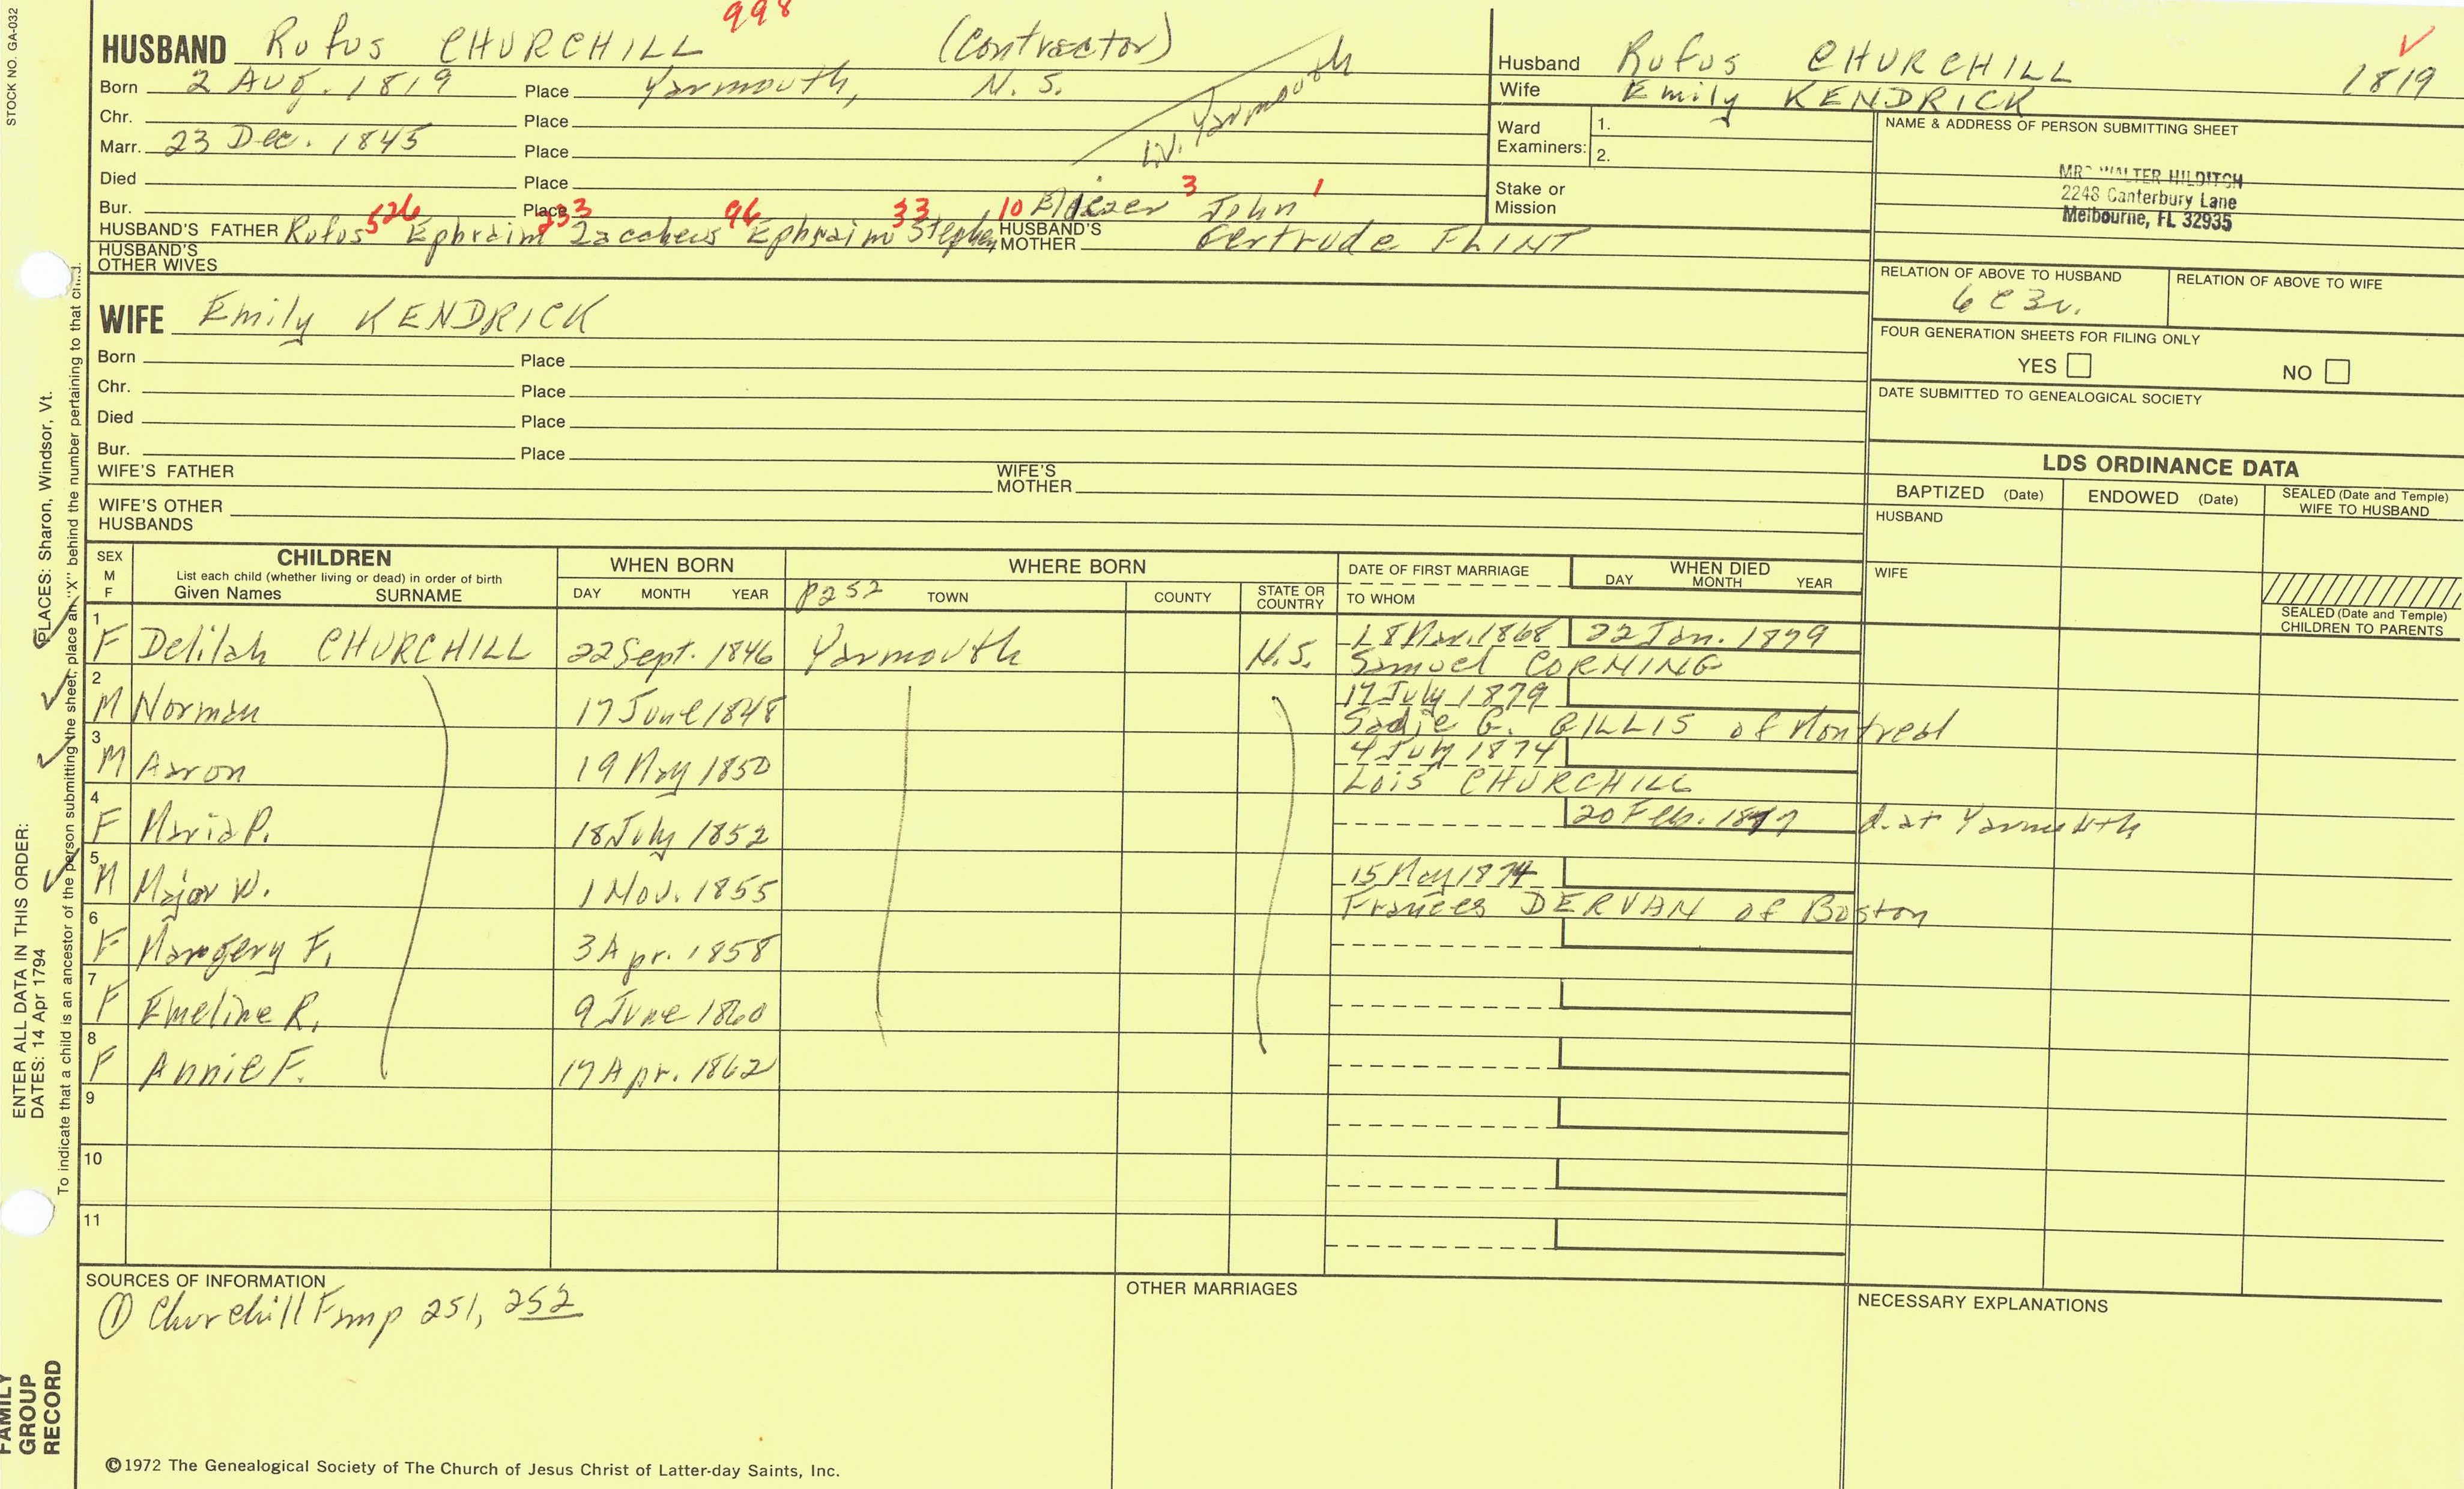 STOCK NO. GA-032
998
HUSBAND Rufus CHURCHILL (Contractor)
Born 2 Aug. 1819 Place Yarmouth, N. S.
Chr. Place
Marr. 23 Dec. 1845 Place
Liv. Yarmouth
Died Place
Bur. Place
HUSBAND'S FATHER Rufus 526 Ephraim 233 Zaccheus 96 Ephraim 33 Stephen 10 Eliezer 3 John 1
HUSBAND'S MOTHER Gertrude FLINT
HUSBAND'S OTHER WIVES
Husband Rufus CHURCHILL
Wife Emily KENDRICK
1819
Ward Examiners: 1.
2.
Stake or Mission
NAME & ADDRESS OF PERSON SUBMITTING SHEET
MRS WALTER HILDITCH
2248 Canterbury Lane
Melbourne, FL 32935
RELATION OF ABOVE TO HUSBAND
6C3r.
RELATION OF ABOVE TO WIFE
FOUR GENERATION SHEETS FOR FILING ONLY
YES NO
DATE SUBMITTED TO GENEALOGICAL SOCIETY
WIFE Emily KENDRICK
Born Place
Chr. Place
Died Place
Bur. Place
WIFE'S FATHER
WIFE'S MOTHER
WIFE'S OTHER HUSBANDS
LDS ORDINANCE DATA
BAPTIZED (Date) ENDOWED (Date) SEALED (Date and Temple) WIFE TO HUSBAND
HUSBAND
WIFE
SEALED (Date and Temple) CHILDREN TO PARENTS
SEX M F
CHILDREN
List each child (whether living or dead) in order of birth
Given Names SURNAME
WHEN BORN
DAY MONTH YEAR
WHERE BORN
p252 TOWN COUNTY STATE OR COUNTRY
DATE OF FIRST MARRIAGE
TO WHOM
WHEN DIED
DAY MONTH YEAR
1 F Delilah CHURCHILL 22 Sept. 1846 Yarmouth N.S. 18 Mar. 1868 22 Jan. 1879
Samuel CORNING
2 M Norman 17 June 1848 17 July 1879
Sadie G. GILLIS of Montreal
3 M Aaron 19 May 1850 4 July 1874
Lois CHURCHILL
4 F Maria P. 18 July 1852 20 Feb. 1877 d. at Yarmouth
5 M Major W. 1 Nov. 1855 15 May 1874
Frances DERVAN of Boston
6 F Margery F. 3 Apr. 1858
7 F Emeline R. 9 June 1860
8 F Annie F. 17 Apr. 1862
9
10
11
SOURCES OF INFORMATION
① Churchill Fam p 251, 252
OTHER MARRIAGES
NECESSARY EXPLANATIONS
©1972 The Genealogical Society of The Church of Jesus Christ of Latter-day Saints, Inc.
ENTER ALL DATA IN THIS ORDER:
DATES: 14 Apr 1794
PLACES: Sharon, Windsor, Vt.
To indicate that a child is an ancestor of the person submitting the sheet, place an "X" behind the number pertaining to that child.
FAMILY
GROUP
RECORD